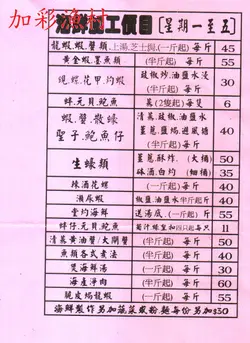 加彩漁村
海鮮加工價目 [星期一至五]
龍蝦.蝦.蟹類 上湯.芝士焗(一斤起) 每斤 45
黃金蝦.墨魚類 (半斤起) 每斤 55
蜆.螺.花甲.灼蝦 豉椒炒.油鹽水浸 (一斤起) 每斤 30
蚌.元貝.鮑 蒸(2隻起) 每隻 6
蝦.蟹.散蠔 清蒸.豉椒.油鹽水
聖子.鮑魚仔 薑葱.鹽焗.避風塘 (半斤起) 每斤 40
生蠔類 薑葱.酥炸. (大桶) 50
砵酒.白灼 (細桶) 35
辣酒花螺 (一斤起) 每斤 40
瀨尿蝦 椒鹽.油鹽水(半斤起) 每斤 40
堂灼海鮮 送湯底.(一斤起) 每斤 55
蚌仔.元貝.鮑魚 每隻 11
清蒸黃油蟹/大閘蟹 (半斤起) 每斤 50
魚類各式煮法 (半斤起) 每斤 30
煲海鮮湯 (一斤起) 每斤 30
海產淨肉 (半斤起) 每斤 60
脆皮焗龍蝦 (一斤起) 每斤 55
海鮮製作另加蔬菜或粉麵每份另加$30